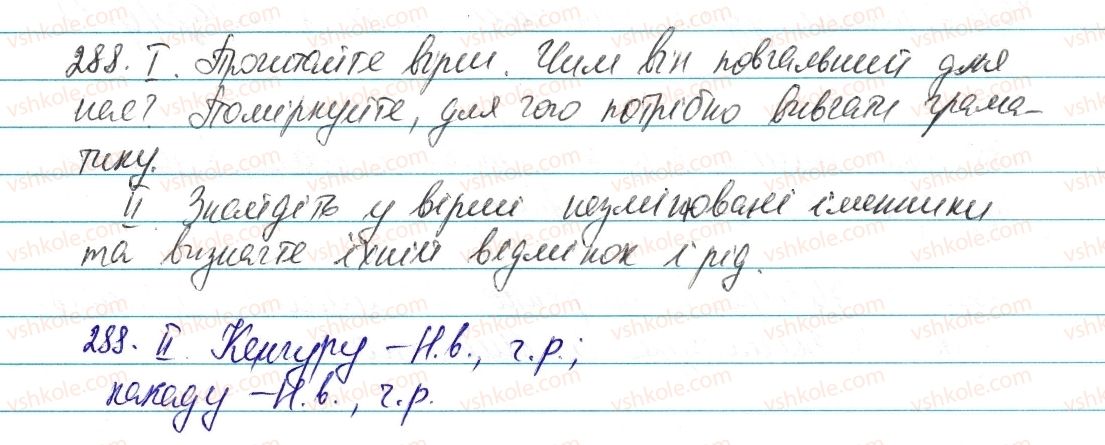 288. І. Прочитайте вірш. Чим він повчальний для
нас? Поміркуйте, для чого потрібно вивчати грама-
тику.
ІІ Знайдіть у вірші незмінювані іменники
та визначте їхній відмінок і рід.
288. ІІ Кенгуру – Н.в., ч.р.;
какаду – Н.в., ч.р.